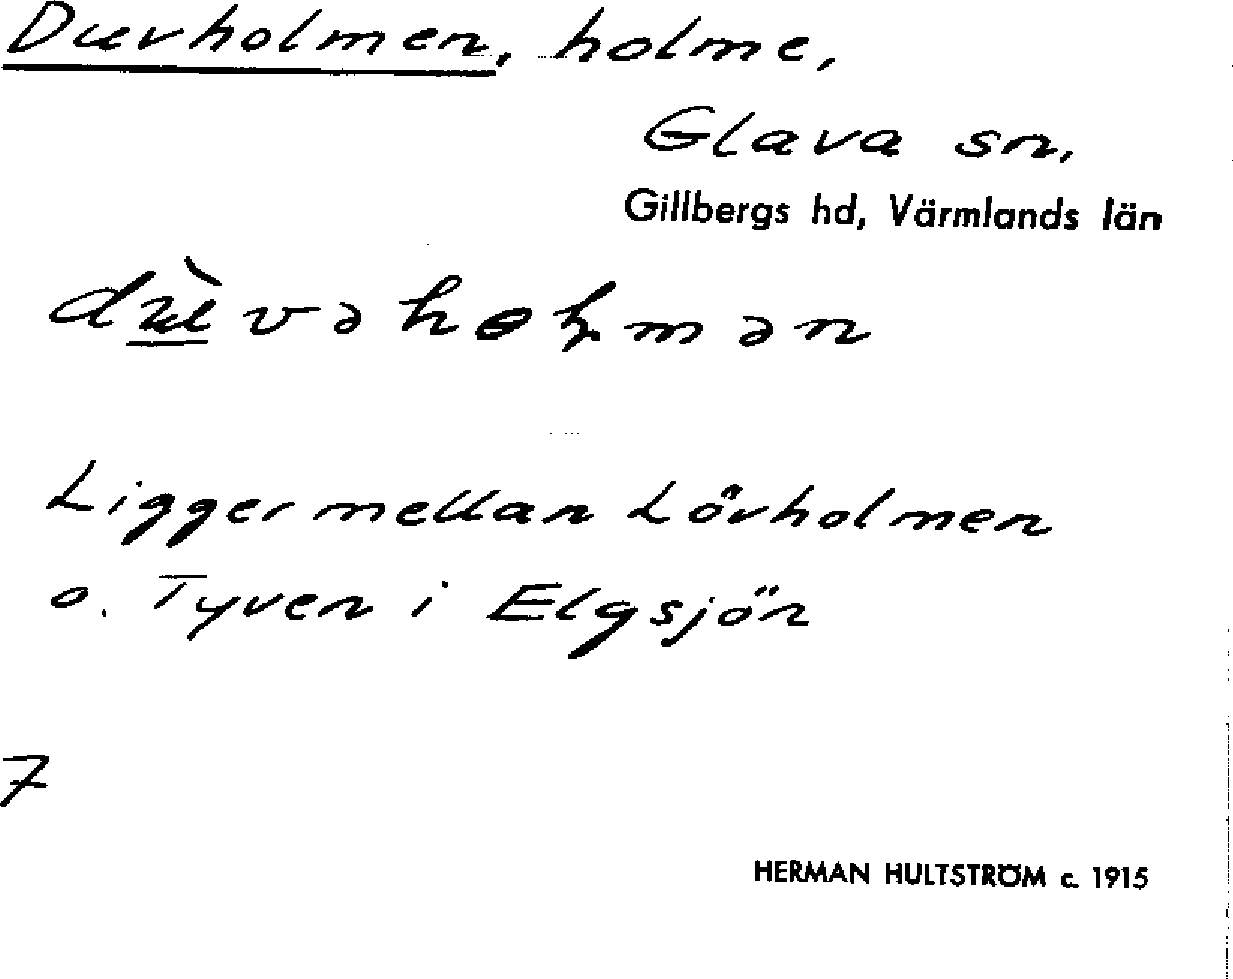 Dævholmen, holme,
Glava sn,
Gillbergs hd, Värmlands län
dæ̲̀vəhɵɽmən
Ligger mellan Lövholmen
o. Tyven i Elgsjön
7
HERMAN HULTSTRÖM c. 1915